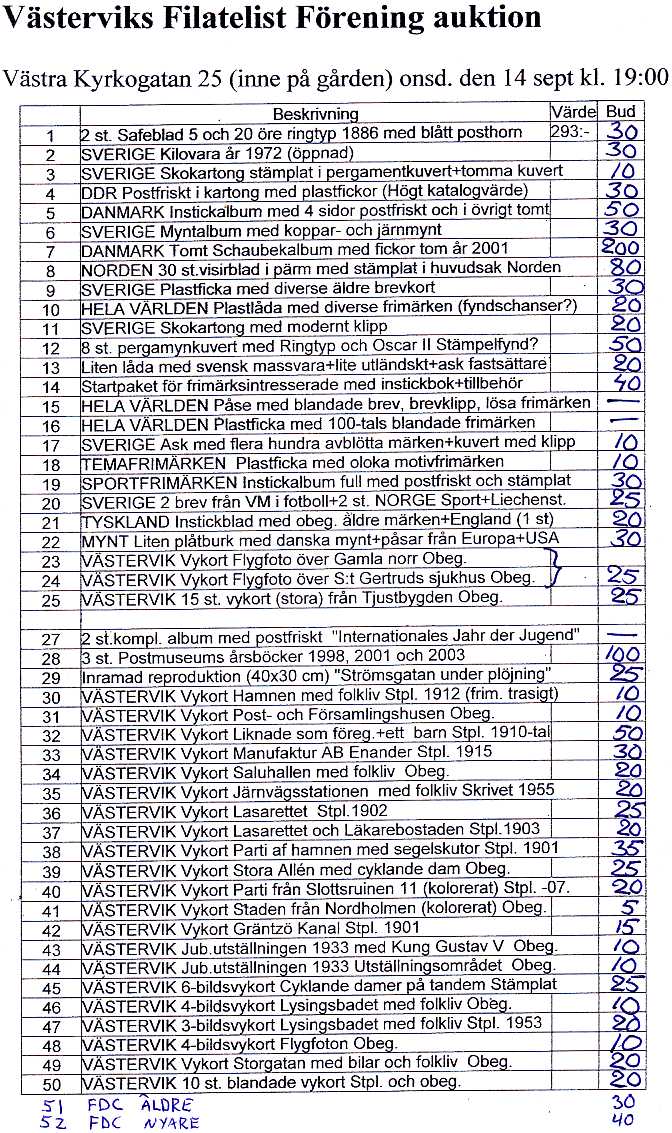 Västerviks Filatelist Förening auktion
Västra Kyrkogatan 25 (inne på gården) onsd. den 14 sept kl. 19:00
Beskrivning Värde Bud
1 2 st. Safeblad 5 och 20 öre ringtyp 1886 med blått posthorn 293:- 30
2 SVERIGE Kilovara år 1972 (öppnad) 30
3 SVERIGE Skokartong stämplat i pergamentkuvert+tomma kuvert 10
4 DDR Postfriskt i kartong med plastfickor (Högt katalogvärde) 30
5 DANMARK Instickalbum med 4 sidor postfriskt och i övrigt tomt 50
6 SVERIGE Myntalbum med koppar- och järnmynt 30
7 DANMARK Tomt Schaubekalbum med fickor tom år 2001 200
8 NORDEN 30 st.visirblad i pärm med stämplat i huvudsak Norden 80
9 SVERIGE Plastficka med diverse äldre brevkort 30
10 HELA VÄRLDEN Plastlåda med diverse frimärken (fyndschanser?) 20
11 SVERIGE Skokartong med modernt klipp 20
12 8 st. pergamynkuvert med Ringtyp och Oscar II Stämpelfynd? 50
13 Liten låda med svensk massvara+lite utländskt+ask fastsättare 20
14 Startpaket för frimärksintresserade med instickbok+tillbehör 40
15 HELA VÄRLDEN Påse med blandade brev, brevklipp, lösa frimärken —
16 HELA VÄRLDEN Plastficka med 100-tals blandade frimärken —
17 SVERIGE Ask med flera hundra avblötta märken+kuvert med klipp 10
18 TEMAFRIMÄRKEN Plastficka med oloka motivfrimärken 10
19 SPORTFRIMÄRKEN Instickalbum full med postfriskt och stämplat 30
20 SVERIGE 2 brev från VM i fotboll+2 st. NORGE Sport+Liechenst. 25
21 TYSKLAND Instickblad med obeg. äldre märken+England (1 st) 20
22 MYNT Liten plåtburk med danska mynt+påsar från Europa+USA 30
23 VÄSTERVIK Vykort Flygfoto över Gamla norr Obeg.
24 VÄSTERVIK Vykort Flygfoto över S:t Gertruds sjukhus Obeg. 25
25 VÄSTERVIK 15 st. vykort (stora) från Tjustbygden Obeg. 25
27 2 st.kompl. album med postfriskt "Internationales Jahr der Jugend" —
28 3 st. Postmuseums årsböcker 1998, 2001 och 2003 100
29 Inramad reproduktion (40x30 cm) "Strömsgatan under plöjning" 25
30 VÄSTERVIK Vykort Hamnen med folkliv Stpl. 1912 (frim. trasigt) 10
31 VÄSTERVIK Vykort Post- och Församlingshusen Obeg. 10
32 VÄSTERVIK Vykort Liknade som föreg.+ett barn Stpl. 1910-tal 50
33 VÄSTERVIK Vykort Manufaktur AB Enander Stpl. 1915 30
34 VÄSTERVIK Vykort Saluhallen med folkliv Obeg. 20
35 VÄSTERVIK Vykort Järnvägsstationen med folkliv Skrivet 1955 20
36 VÄSTERVIK Vykort Lasarettet Stpl.1902 25
37 VÄSTERVIK Vykort Lasarettet och Läkarebostaden Stpl.1903 20
38 VÄSTERVIK Vykort Parti af hamnen med segelskutor Stpl. 1901 35
39 VÄSTERVIK Vykort Stora Allén med cyklande dam Obeg. 25
40 VÄSTERVIK Vykort Parti från Slottsruinen 11 (kolorerat) Stpl. -07. 20
41 VÄSTERVIK Vykort Staden från Nordholmen (kolorerat) Obeg. 5
42 VÄSTERVIK Vykort Gräntzö Kanal Stpl. 1901 15
43 VÄSTERVIK Jub.utställningen 1933 med Kung Gustav V Obeg. 10
44 VÄSTERVIK Jub.utställningen 1933 Utställningsområdet Obeg. 10
45 VÄSTERVIK 6-bildsvykort Cyklande damer på tandem Stämplat 25
46 VÄSTERVIK 4-bildsvykort Lysingsbadet med folkliv Obeg. 10
47 VÄSTERVIK 3-bildsvykort Lysingsbadet med folkliv Stpl. 1953 20
48 VÄSTERVIK 4-bildsvykort Flygfoton Obeg. 10
49 VÄSTERVIK Vykort Storgatan med bilar och folkliv Obeg. 20
50 VÄSTERVIK 10 st. blandade vykort Stpl. och obeg. 20
51 FDC ÄLDRE 30
52 FDC NYARE 40